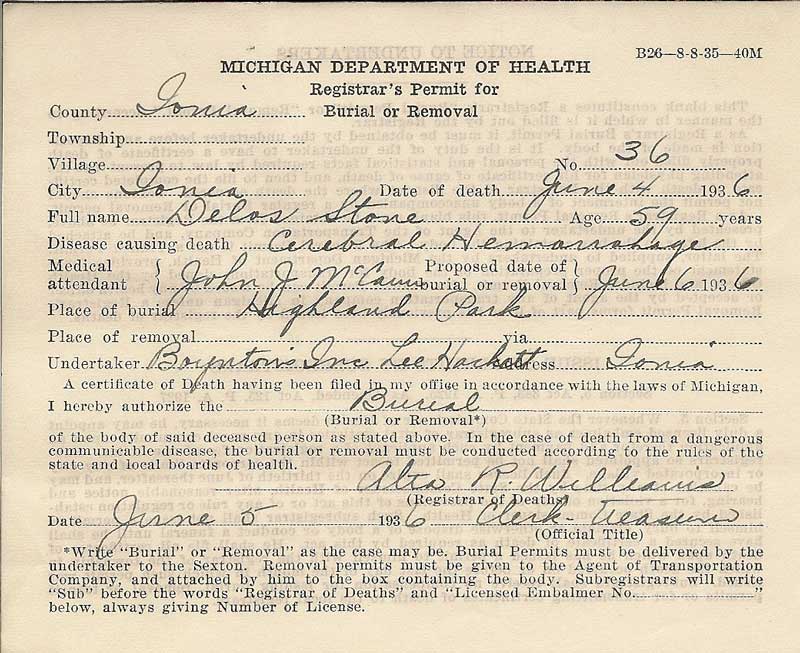 B26—8-8-35—40M
MICHIGAN DEPARTMENT OF HEALTH
Registrar's Permit for
Burial or Removal
County Ionia
Township
Village No. 36
City Ionia Date of death June 4 1936
Full name Delos Stone Age 59 years
Disease causing death Cerebral Hemarrahage
Medical attendant John J McCann Proposed date of burial or removal June 6 1936
Place of burial Highland Park
Place of removal via
Undertaker Boynton's Inc Lee Hackett Address Ionia
A certificate of Death having been filed in my office in accordance with the laws of Michigan,
I hereby authorize the Burial
(Burial or Removal*)
of the body of said deceased person as stated above. In the case of death from a dangerous
communicable disease, the burial or removal must be conducted according to the rules of the
state and local boards of health.
Alta R. Williams
(Registrar of Deaths)
Date June 5 1936 Clerk-Treasurer
(Official Title)
*Write "Burial" or "Removal" as the case may be. Burial Permits must be delivered by the
undertaker to the Sexton. Removal permits must be given to the Agent of Transportation
Company, and attached by him to the box containing the body. Subregistrars will write
"Sub" before the words "Registrar of Deaths" and "Licensed Embalmer No. "
below, always giving Number of License.